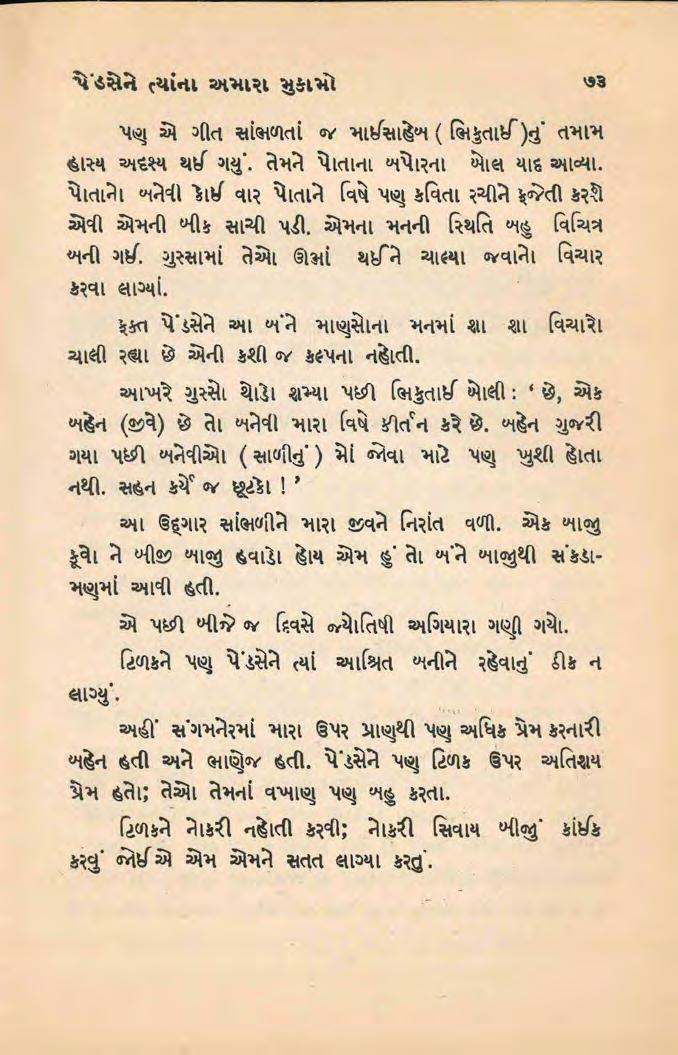 પેંડસેને ત્યાંના અમારા મુકામો ૭૩
પણ એ ગીત સાંભળતાં જ માઈસાહેબ ( ભિકુતાઈ )નું તમામ
હાસ્ય અદૃશ્ય થઈ ગયું. તેમને પોતાના બપોરના બોલ યાદ આવ્યા.
પોતાનો બનેવી કોઈ વાર પોતાને વિષે પણ કવિતા રચીને ફજેતી કરશે
એવી એમની બીક સાચી પડી. એમના મનની સ્થિતિ બહુ વિચિત્ર
બની ગઈ. ગુસ્સામાં તેઓ ઊભાં થઈને ચાલ્યા જવાનો વિચાર
કરવા લાગ્યાં.
ફક્ત પેંડસેને આ બંને માણસોના મનમાં શા શા વિચારો
ચાલી રહ્યા છે એની કશી જ કલ્પના નહોતી.
આખરે ગુસ્સો થોડો શમ્યા પછી ભિકુતાઈ બોલી : ‘ છે, એક
બહેન (જીવે) છે તો બનેવી મારા વિષે કીર્તન કરે છે. બહેન ગુજરી
ગયા પછી બનેવીઓ ( સાળીનું ) મોં જોવા માટે પણ ખુશી હોતા
નથી. સહન કર્યે જ છૂટકો ! ’
આ ઉદ્ગાર સાંભળીને મારા જીવને નિરાંત વળી. એક બાજુ
કૂવો ને બીજી બાજુ હવાડો હોય એમ હું તો બંને બાજુથી સંકડા-
મણમાં આવી હતી.
એ પછી બીજે જ દિવસે જ્યોતિષી અગિયારા ગણી ગયો.
ટિળકને પણ પેંડસેને ત્યાં આશ્રિત બનીને રહેવાનું ઠીક ન
લાગ્યું.
અહીં સંગમનેરમાં મારા ઉપર પ્રાણથી પણ અધિક પ્રેમ કરનારી
બહેન હતી અને ભાણેજ હતી. પેંડસેને પણ ટિળક ઉપર અતિશય
પ્રેમ હતો; તેઓ તેમનાં વખાણ પણ બહુ કરતા.
ટિળકને નોકરી નહોતી કરવી; નોકરી સિવાય બીજું કાંઈક
કરવું જોઈએ એમ એમને સતત લાગ્યા કરતું.